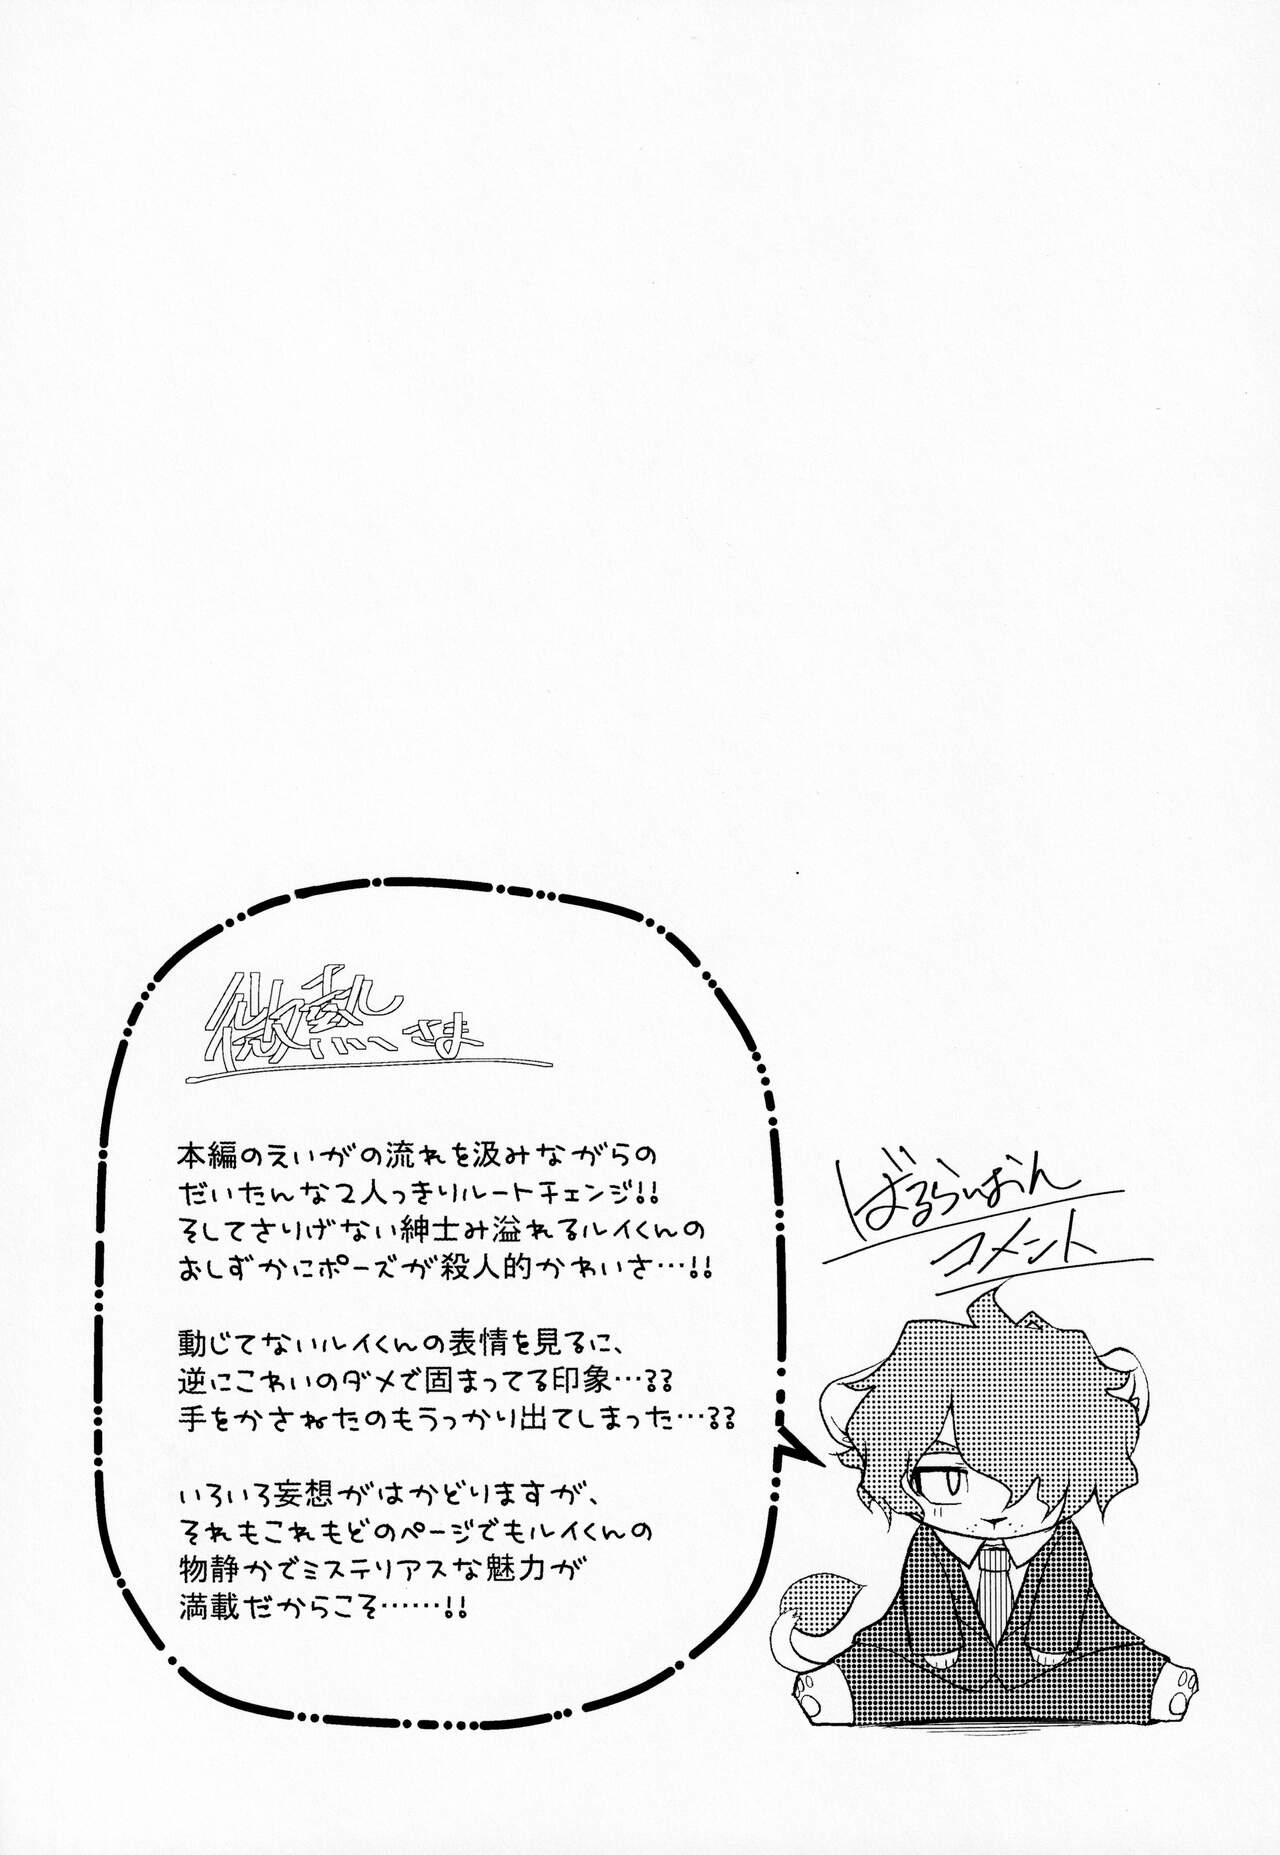 微熱さま
本編のえいがの流れを汲みながらの
だいたんな2人っきりルートチェンジ!!
そしてさりげない紳士み溢れるルイくんの
おしずかにポーズが殺人的かわいさ…!!
動じてないルイくんの表情を見るに、
逆にこわいのダメで固まってる印象…??
手をかさねたのもうっかり出てしまった…??
いろいろ妄想がはかどりますが、
それもこれもどのページでもルイくんの
物静かでミステリアスな魅力が
満載だからこそ……!!
ばるらいおん
コメント